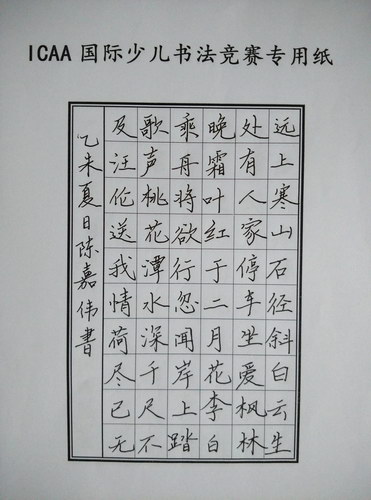 ICAA 国际少儿书法竞赛专用纸
远上寒山石径斜白云生
处有人家停车坐爱枫林
晚霜叶红于二月花李白
乘舟将欲行忽闻岸上踏
歌声桃花潭水深千尺不
及汪伦送我情荷尽已无
乙未夏日陈嘉伟書